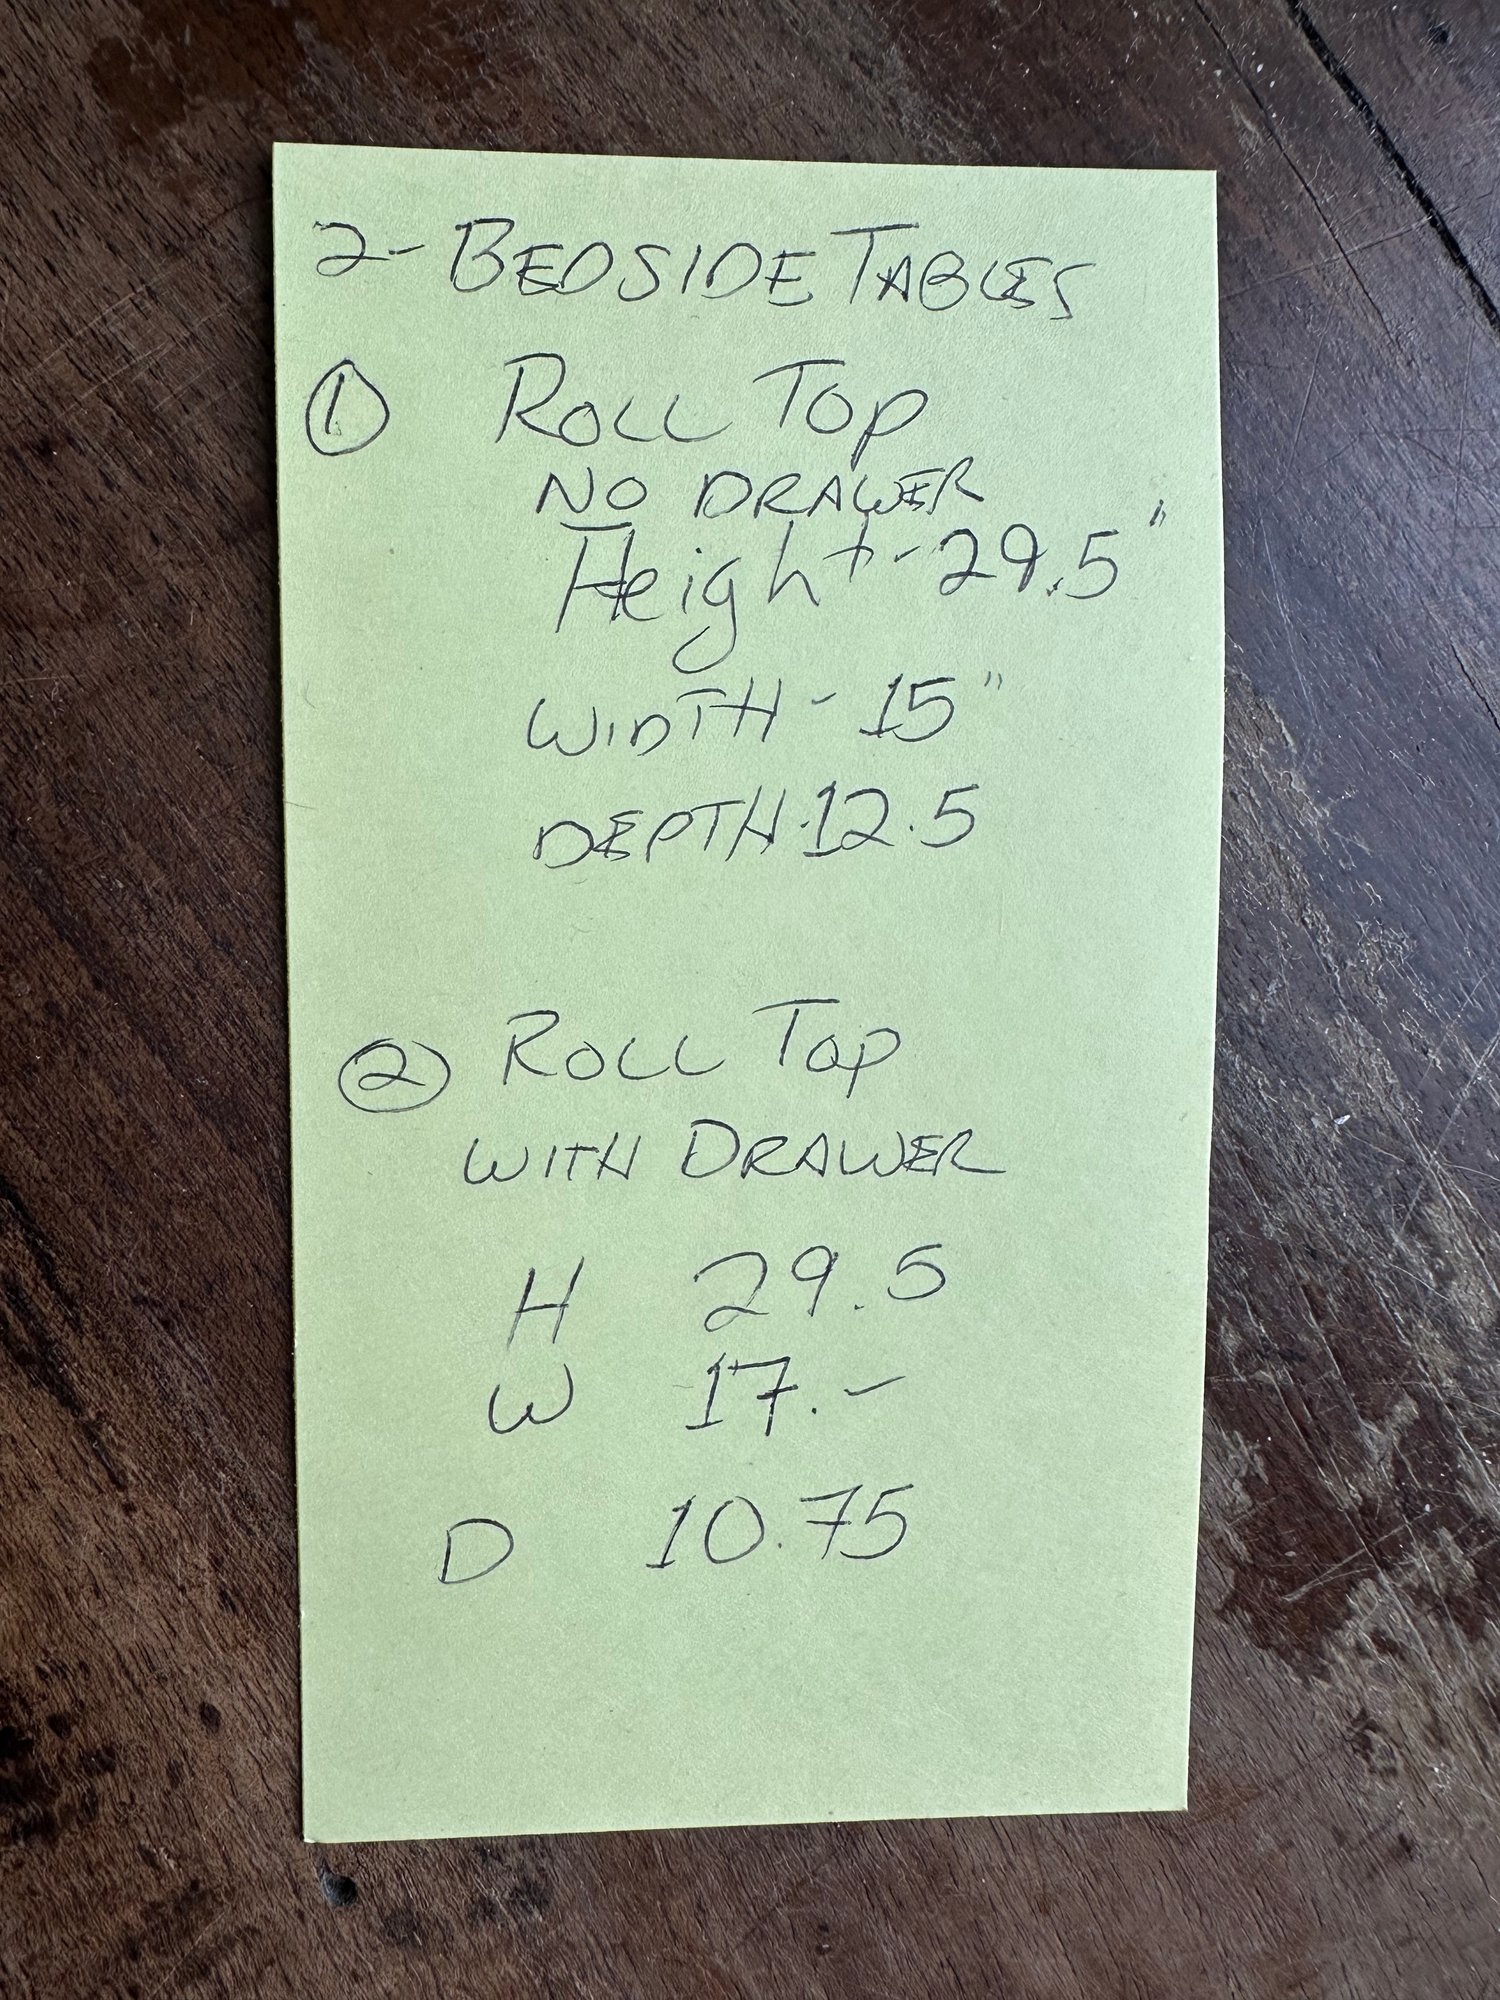 2- BEDSIDE TABLES
① ROLL TOP
NO DRAWER
Height - 29.5"
WIDTH - 15"
DEPTH - 12.5
② ROLL TOP
WITH DRAWER
H 29.5
W 17.-
D 10.75